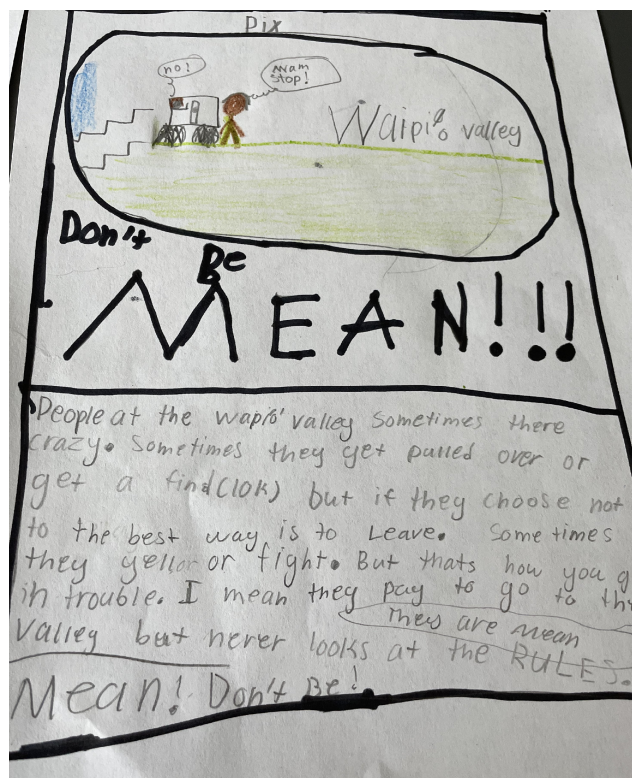 Pix
no!
mam
stop!
Waipi'o valley
Don't
Be
MEAN!!!
People at the wapio' valley sometimes there
crazy. Sometimes they get pulled over or
get a find(10k) but if they choose not
to the best way is to Leave. Some times
they yell or fight. But thats how you g
in trouble. I mean they pay to go to th
They are mean
valley but never looks at the RULES.
Mean! Don't Be!